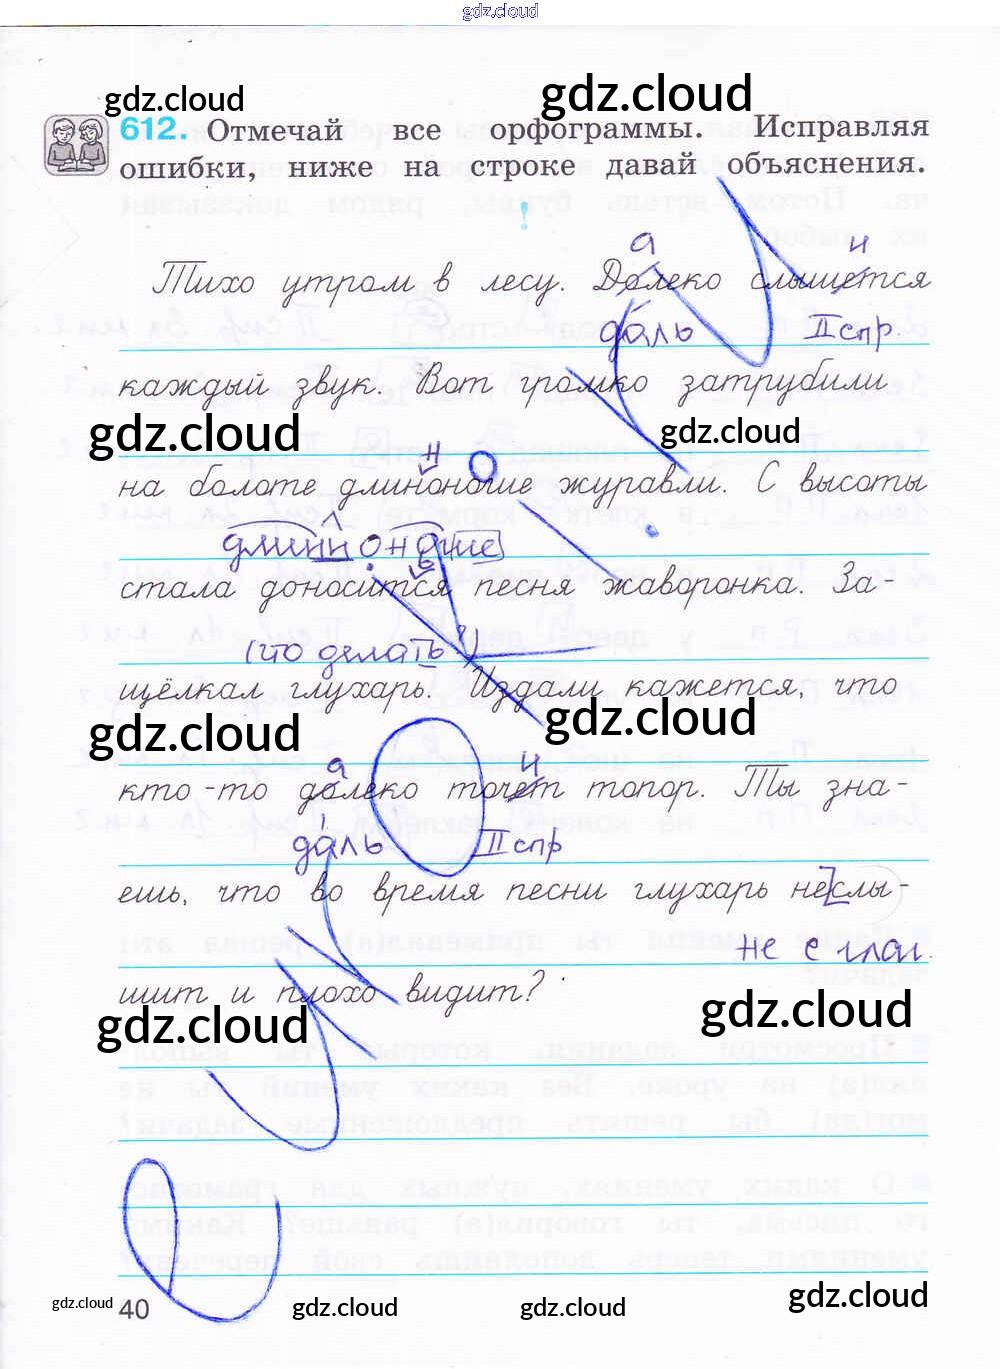 gdz.cloud
gdz.cloud gdz.cloud
612. Отмечай все орфограммы. Исправляя
ошибки, ниже на строке давай объяснения.
!
а и
Тихо утром в лесу. Долеко слыщется
даль II спр.
каждый звук. Вот громко затрубили
gdz.cloud gdz.cloud
н
на болоте длиноногие журавли. С высоты
длинноногие
ь
стала доносится песня жаворонка. За-
(что делать?)
щёлкал глухарь. Издали кажется, что
gdz.cloud gdz.cloud
а и
кто-то далеко точет топор. Ты зна-
даль II спр
ешь, что во время песни глухарь неслы-
не с глаг.
шит и плохо видит?
gdz.cloud gdz.cloud
gdz.cloud 40 gdz.cloud gdz.cloud gdz.cloud